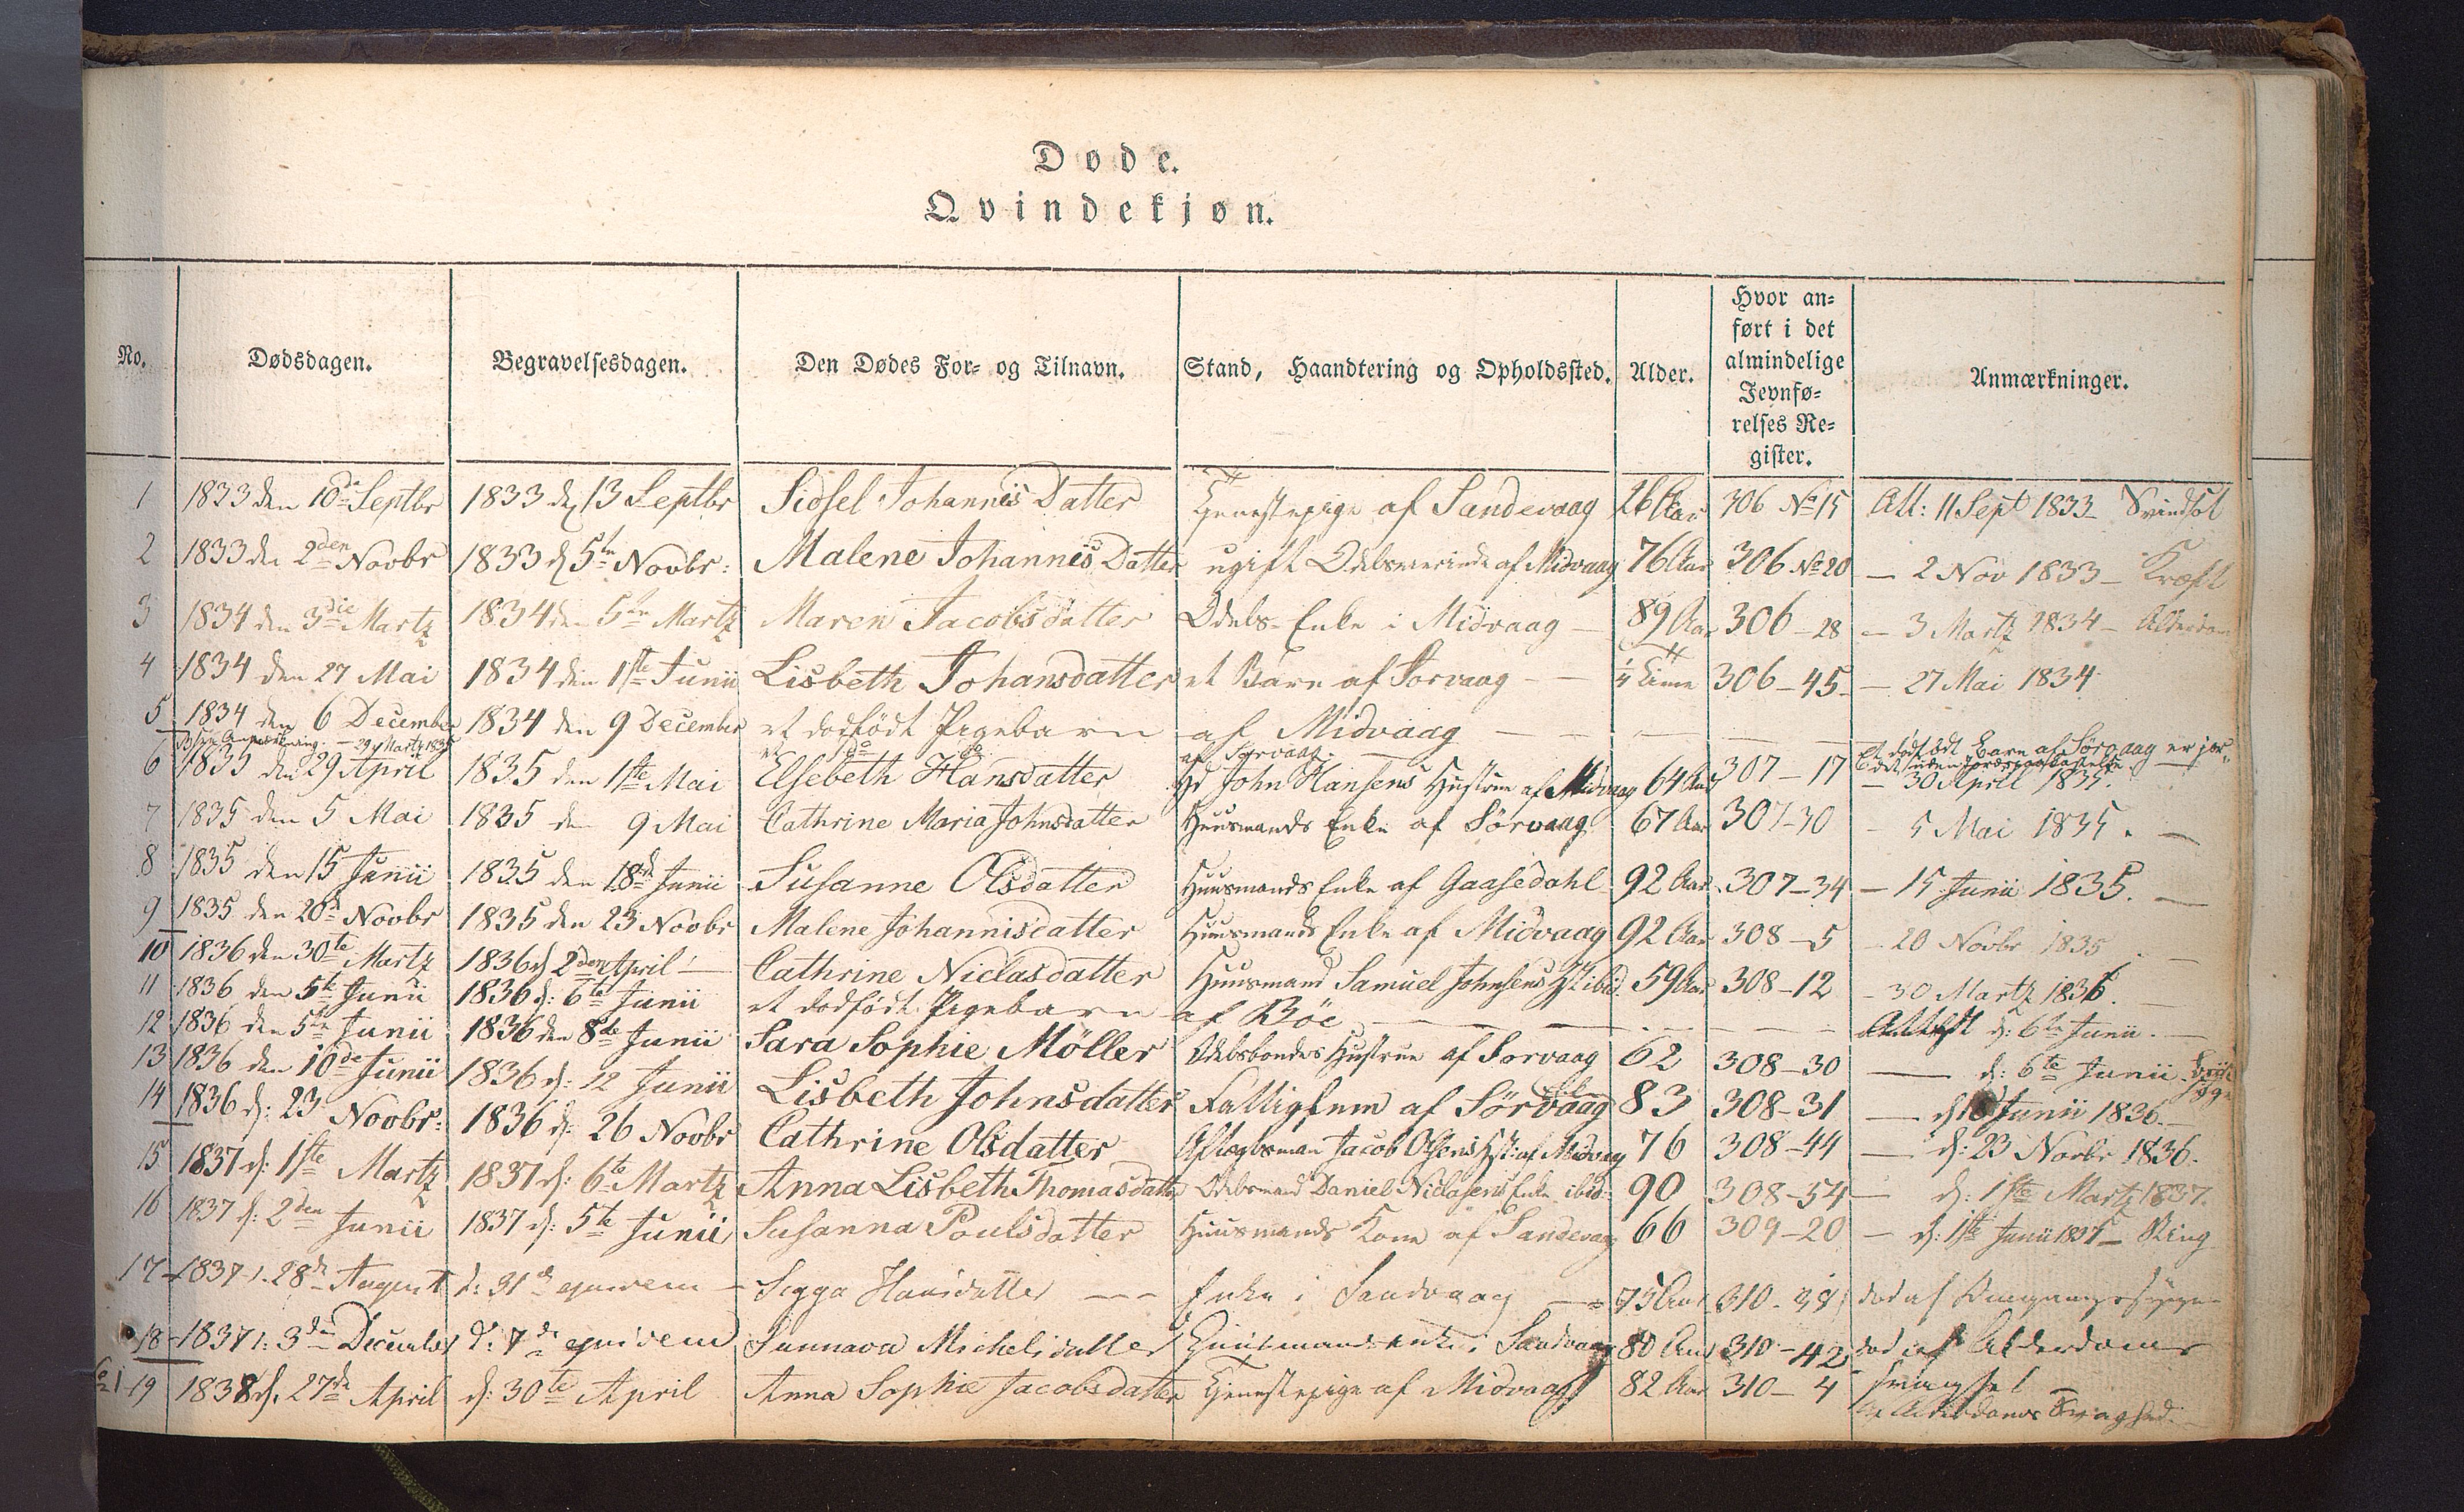 Døde.
Qvindekjøn.
No. Dødsdagen. Begravelsesdagen. Den Dødes For- og Tilnavn. Stand, Haandtering og Opholdssted. Alder. Hvor an=
ført i det
almindelige
Jevnfø=
relses Re=
gister. Anmærkninger.
1 1833 den 10de Septbr 1833 d 13 Septbr Sidsel Johannis Datter Tjenestepige af Sandevaag 26 Aar 306 No 15 Att: 11 Sept 1833 Svindsot
2 1833 den 2den Novbr 1833 d 5te Novbr: Malene Johannes Datter ugift af Midvaag 76 Aar 306 No 20 — 2 Nov 1833 — Kræft
3 1834 den 3die Martz 1834 den 5te Martz Maren Jacobsdatter Odels-Enke i Midvaag — 89 Aar 306 — 28 — 3 Martz 1834 — Alderdom
4 1834 den 27 Mai 1834 den 1ste Junii Lisbeth Johansdatter et Barn af Sorvaag — — 1/4 Time 306 — 45 — 27 Mai 1834
5 1834 den 6 December 1834 den 9 December et dodfödt Pigebarn af Midvaag — — —
— 29 Martz 1835 et do do af Sørvaag. Et dødfødt Barn af Sørvaag er jor-
6 1835 den 29 April 1835 den 1ste Mai Elsebeth Hansdatter John Hansens Hustrue af Midvaag 64 Aar 307 — 17 — 30 April 1835.
7 1835 den 5 Mai 1835 den 9 Mai Cathrine Maria Johnsdatter Huusmands Enke af Sörvaag 67 Aar 307-30 — 5 Mai 1835. —
8 1835 den 15 Junii 1835 den 18de Junii Susanne Olsdatter Huusmands Enke af Gaasedahl 92 Aar 307-34 — 15 Junii 1835. —
9 1835 den 20d Novbr 1835 den 23 Novbr Malene Johannisdatter Huusmands Enke af Midvaag 92 Aar 308 — 5 — 20 Novbr 1835
10 1836 den 30te Martz 1836 d 2den April — Cathrine Niclasdatter Huusmand Samuel Johnsens H: ibid. 59 Aar 308 — 12 — 30 Martz 1836.
11 1836 den 5te Junii 1836 d: 6te Junii et dodfödt Pigebarn af Böe — — — Attest d: 6te Junii. —
12 1836 den 5te Junii 1836 den 8de Junii Sara Sophie Möller Odelsbondes Hustrue af Sorvaag 62 308 — 30 — d: 6te Junii
13 1836 den 10de Junii 1836 d: 12 Junii Lisbeth Johnsdatter Fattiglem af Sörvaag 83 308-31 — Junii 1836. —
14 1836 d: 23 Novbr: 1836 d: 26 Novbr Cathrine Olsdatter Jacob Olsens Hst: af Midvaag 76 308-44 — d: 23 Novbr 1836.
15 1837 d: 1ste Martz 1837 d: 6te Martz Anna Lisbeth Thomasdatter Odelsmand Daniel Niclasens Enke ibid: 90 308-54 — d: 1ste Martz 1837.
16 1837 d: 2den Junii 1837 d: 5te Junii Susanna Poulsdatter Huusmands Kone af Sandevaag 66 309-20 — d: 1ste Junii 1837
17 1837 d. 28de August d: 31te ejusdem — Sigga Hansdatter — — Enke i Sandvaag — 75 Aar 310-38 død af
18 1837 d: 3den December d: 7de ejusdem Sunnava Michelsdatter Huusmands enke i Sandvaag 80 Aar 310-42 død af Alderdoms
svaghed
19 1838 d. 27de April d: 30te April Anna Sophie Jacobsdatter Tjenestepige af Midvaag 82 Aar 310 — 4 Alderdoms Svaghed.